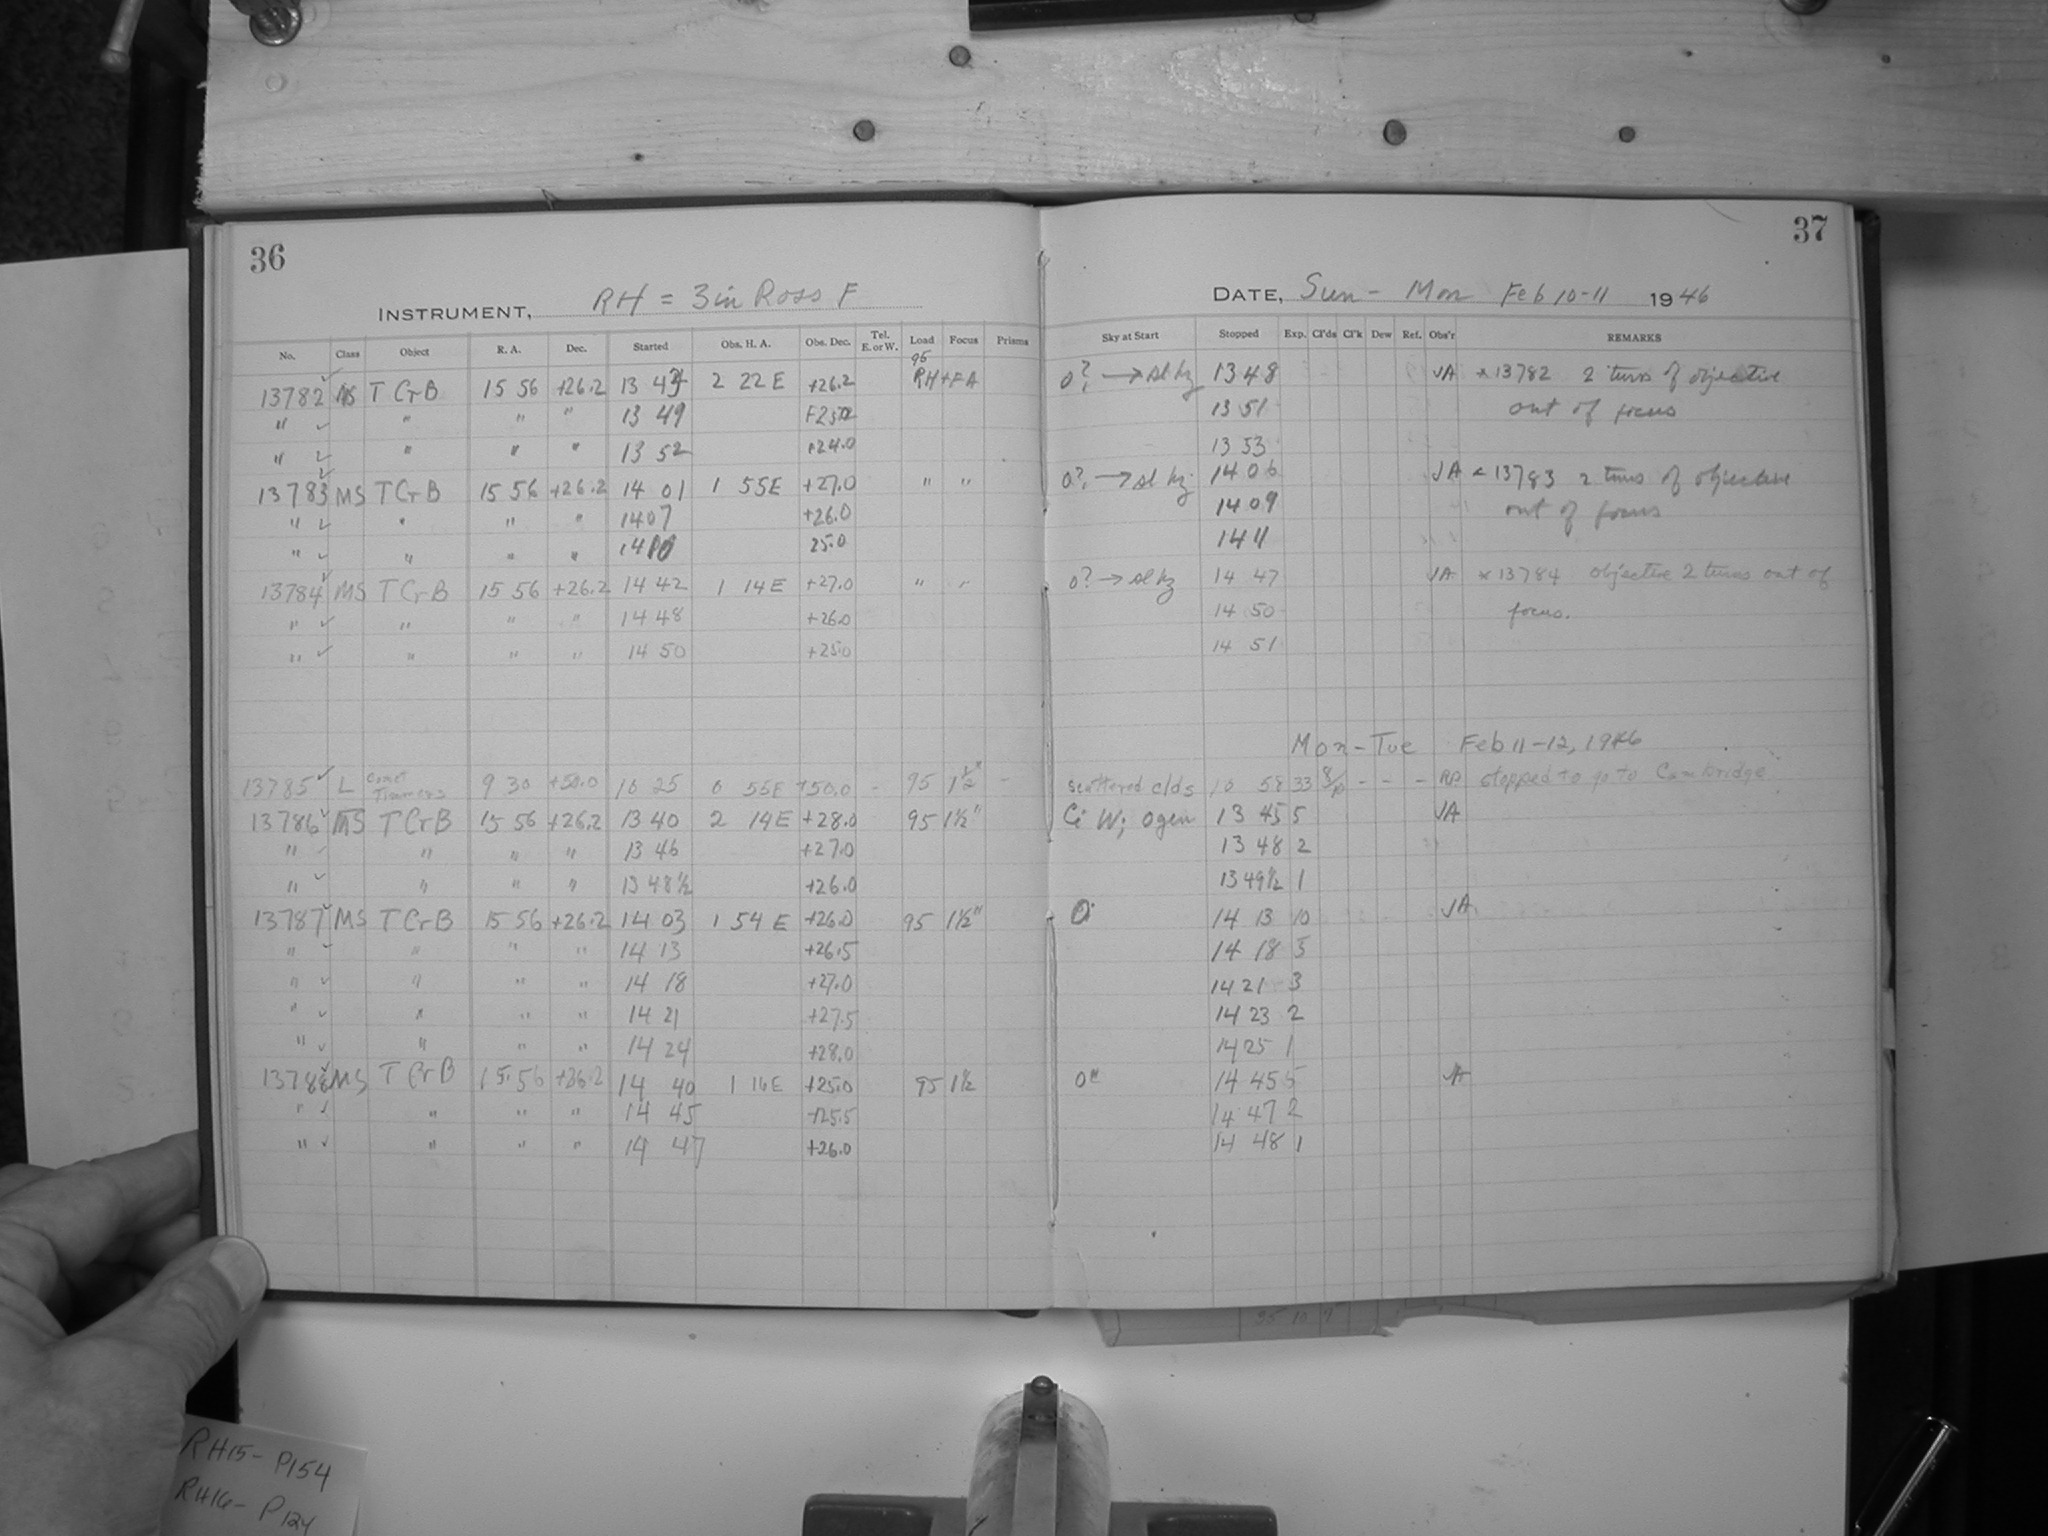 36
INSTRUMENT, RH = 3in Ross F
No. Class Object R. A. Dec. Started Obs. H. A. Obs. Dec. Tel. E. or W. Load Focus Prisms
95
13782 MS T CrB 15 56 +26.2 13 43 2 22 E +26.2 RH+FA
" " " " 13 49 +25.0
" " " " 13 52 +24.0
13783 MS T CrB 15 56 +26.2 14 01 1 55E +27.0 " "
" " " " 14 07 +26.0
" " " " 14 10 25.0
13784 MS T CrB 15 56 +26.2 14 42 1 14E +27.0 " "
" " " " 14 48 +26.0
" " " " 14 50 +25.0
13785 L Comet Timmers 9 30 +50.0 10 25 0 55E +50.0 - 95 1½" -
13786 MS T CrB 15 56 +26.2 13 40 2 14E +28.0 95 1½"
" " " " 13 46 +27.0
" " " " 13 48½ +26.0
13787 MS T CrB 15 56 +26.2 14 03 1 54 E +26.0 95 1½"
" " " " 14 13 +26.5
" " " " 14 18 +27.0
" " " " 14 21 +27.5
" " " " 14 24 +28.0
13788 MS T CrB 15 56 +26.2 14 40 1 16E +25.0 95 1½
" " " " 14 45 +25.5
" " " " 14 47 +26.0
37
DATE, Sun - Mon Feb 10-11 1946
Sky at Start Stopped Exp. Cl'ds Cl'k Dew Ref. Obs'r REMARKS
0? → sl hz 13 48 JA * 13782 2 turns of objective
13 51 out of focus
13 53
0? → sl hz 14 06 JA * 13783 2 turns of objective
14 09 out of focus
14 11
0? → sl hz 14 47 JA * 13784 objective 2 turns out of
14 50 focus.
14 51
Mon - Tue Feb 11-12, 1946
scattered clds 10 58 33 8/10 - - - RP stopped to go to Cambridge
Ci W; 0 gen 13 45 5 JA
13 48 2
13 49½ 1
0 14 13 10 JA
14 18 5
14 21 3
14 23 2
14 25 1
0 14 45 5 JA
14 47 2
14 48 1
RH15- P154
RH16- P124